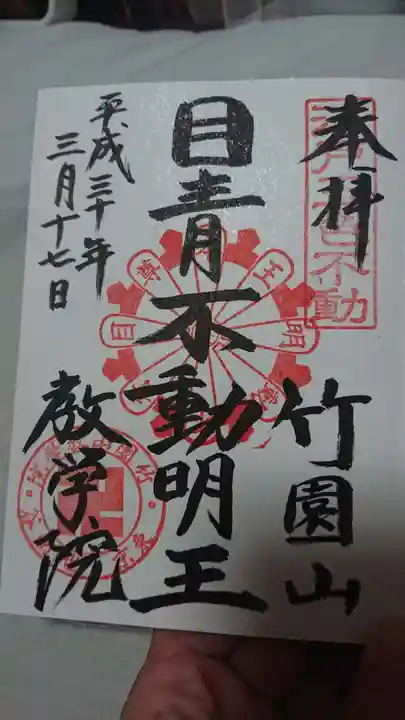 奉拝
竹園山
目青不動明王
平成三十年
三月十七日
教学院
不動